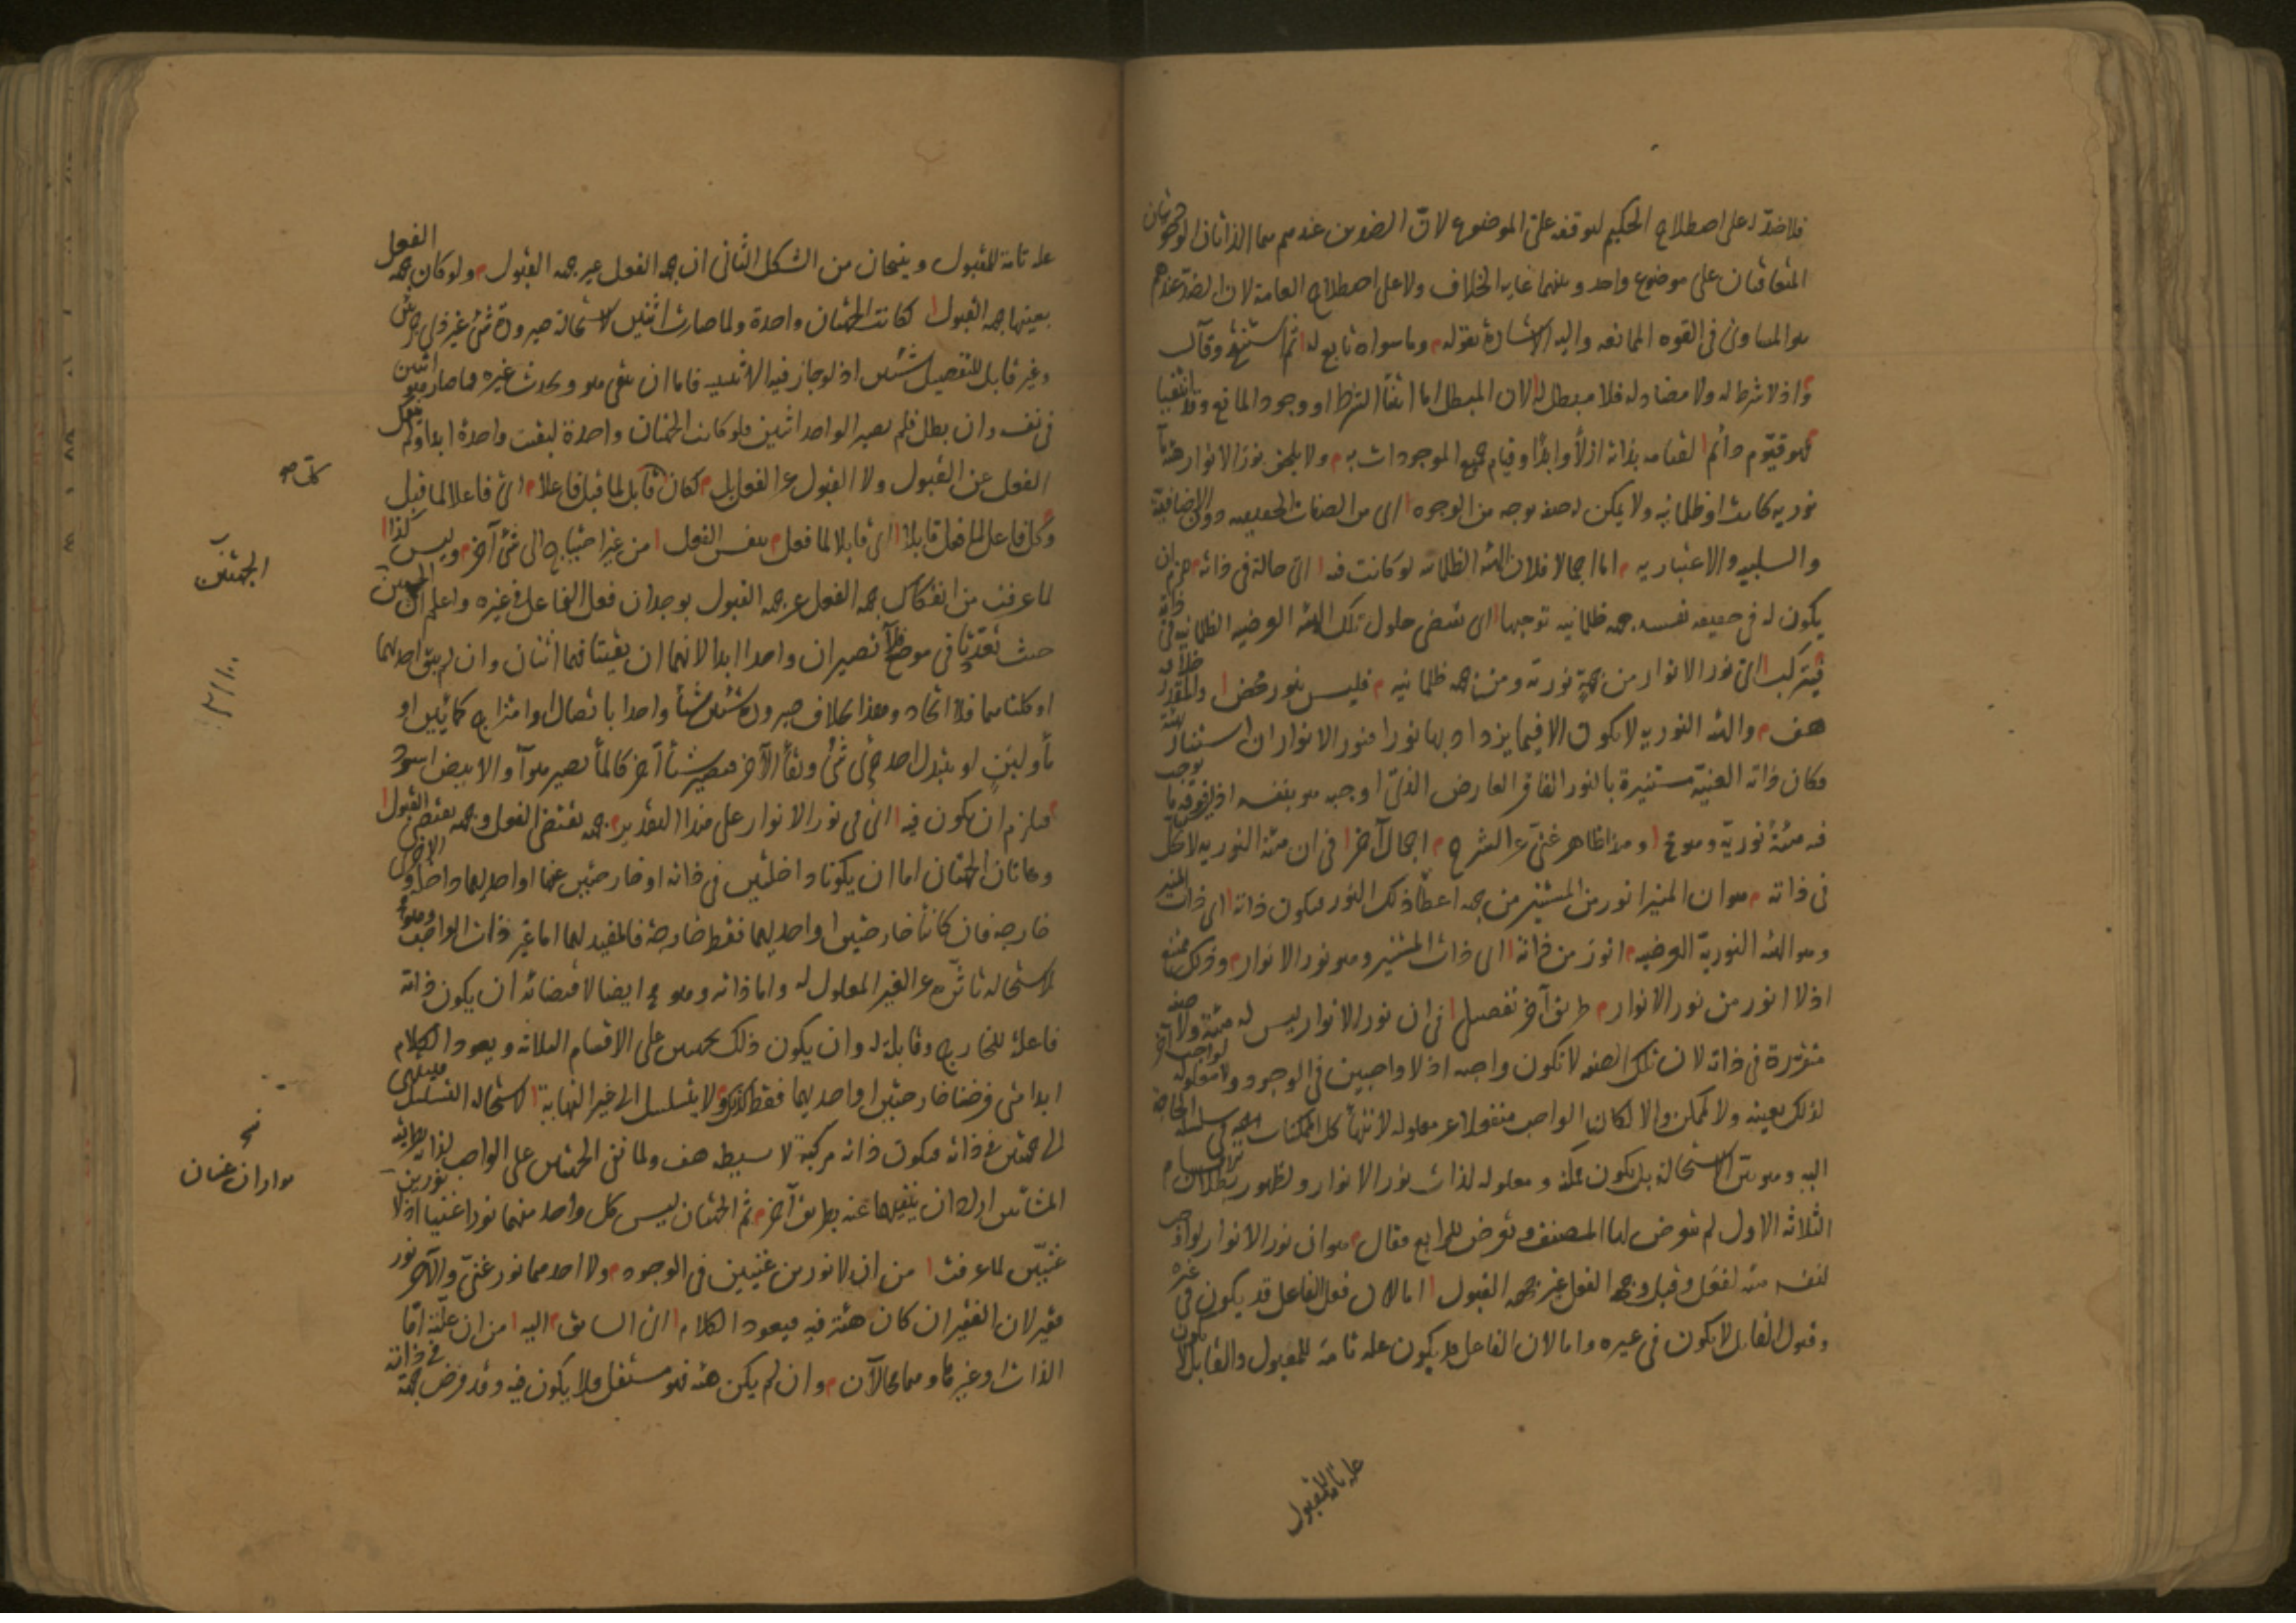 فلا ضدّ له على اصطلاح الحكيم لتوقفه على الموضوع لان الضدين عندهم هما الذاتان الوجوديتان
المتعاقبتان على موضوع واحد وبينهما غاية الخلاف ولا على اصطلاح العامة لان الضدّ عندهم
هو المساوى فى القوه الممانعه واليه الاشارة بقوله وما سواه تابع له ثم استنتج وقال
واذ لا شرط له ولا مضاد له فلا مبطل له لان المبطل اما انتفأ الشرط او وجود المانع وقد انتفيا
فهو قيّوم دائم لقيامه بذاته ازلاً وابدًا وقيام جميع الموجودات به ولا يلحق نور الانوار هيئة ما
نوريه كانت او ظلمانيه ولا يمكن له صفه بوجه من الوجوه اى من الصفات الحقيقيه دون الاضافية
والسلبيه والاعتباريه اما اجمالا فلان الهيئه الظلمانيه لو كانت فيه اى حالة فى ذاته لزم ان
يكون له فى حقيقه نفسه جهه ظلمانيه توجبها اى تقتضى حلول تلك الهيئه العرضيه الظلمانيه فى ذاته
فيتركب اى نور الانوار من جهة نوريه ومن جهه ظلمانيه فليس بنور محض والمقدر خلافه
هف والهيئه النوريه لا تكون الا فيما يزداد بها نورا فنور الانوار ان استنار بهيئة
فكان ذاته الغنيّة مستنيرة بالنور الفاقر العارض الذى اوجبه هو بنفسه اذ ليس فوقه ما يوجب
فيه هيئةً نوريّة وهو مح وهذا ظاهر غنىّ عن الشرح اجمال آخر فى ان هيئة النوريه لا تحل
فى ذاته هو ان المنير انور من المستنير من جهه اعطأ ذلك النور فيكون ذاته اى ذات المنير
وهو الهيئه النوريّة العرضيه انور من ذاته اى ذات المستنير وهو نور الانوار وذلك ممتنع
اذ لا انور من نور الانوار طريق آخر تفصيلى فى ان نور الانوار ليس له هيئة ولا صفه
متقررة فى ذاته لان تلك الصفه لا تكون واجبه اذ لا واجبين فى الوجود ولا معلوله لواجب آخر
لذلك بعينه ولا لممكن والا لكان الواجب منفعلا عن معلوله لانتهأ كل الممكنات فى سلسلة الحاجة
اليه وهو بيّن الاستحالة بل يكون ممكنة ومعلوله لذات نور الانوار ولظهور بطلان الاقسام
الثلاثه الاول لم يتعرض لها المصنف وتعرض للرابع فقال هو ان نور الانوار لو اوجب
لنفسه هيئه لفعل وقبل وجهه الفعل غير جهه القبول اما لان فعل الفاعل قد يكون فى غيره
وقبول القابل لا يكون فى غيره واما لان الفاعل قد يكون علة تامة للمقبول والقابل لا يكون
علة تامة للمقبول
علة تامة للمقبول وينتجان من الشكل الثانى ان جهه الفعل غير جهه القبول ولو كان جهه الفعل
بعينها جهه القبول لكانت الجهتان واحدة ولما صارت اثنين لاستحالة صيرورة شئ غير ذى جزئين
وغير قابل للتفصيل شيئين اذ لو جاز فيه الاثنينيه فاما ان بقى هو وحدث غيره فما صار هو اثنين
فى نفسه وان بطل فلم يصير الواحد اثنين فلو كانت الجهتان واحدة لبقيت واحدة ابدا ولم ينفك
الفعل عن القبول ولا القبول عن الفعل بل لكان كل قابل لما قبل فاعلاً اى فاعلا لما قبل
وكل فاعل لما فعل قابلا اى قابلا لما فعل بنفس الفعل من غير احتياج الى شئ آخر وليس كذا
لما عرفت من انفكاك جهه الفعل عن جهه القبول بوجدان فعل الفاعل فى غيره واعلم ان الجهتين
حيث تعدّدتا فى موضع لا تصيران واحدا ابدا لانهما ان بقيتا فهما اثنان وان لم يبق احدهما
او كلتاهما فلا اتحاد وهذا بخلاف صيرورة شيئين شيأً واحدا باتصال او امتزاج كمائين او
او يتبدل احد جزئى شئ وبقأ الآخر فيصير شيأً آخر كالمأ يصير هوآ والابيض اسود
فيلزم ان يكون فيه اى فى نور الانوار على هذا التقدير جهه تقتضى الفعل وجهه تقتضى القبول
وهاتان الجهتان اما ان يكونا داخلتين فى ذاته او خارجتين عنها او احديهما داخلة والاخرى
خارجه فان كانتا خارجتين او احديهما فقط خارجة فالمفيد لها اما غير ذات الواجب وهو مح
لاستحاله تأثّره عن الغير المعلول له واما ذاته وهو مح ايضا لاقتضائه ان يكون ذاته
فاعلة للخارج وقابلة له وان يكون ذلك بجهتين على الاقسام الثلاثه ويعود الكلام
ابدا متى فرضنا خارجتين او احديهما فقط كذلك ولا يتسلسل الى غير النهاية لاستحاله التسلسل فينتهى
الى جهتين فى ذاته فيكون ذاته مركبة لا بسيطه هف ولما نفى الجهتين على الواجب لذاته بطريقة
المشائين اراد ان ينفيهما عنه بطريق آخر ثم الجهتان ليس كل واحد منهما نورا غنيا اذ لا نورين
غنيّين لما عرفت من ان لا نورين غنيين فى الوجود ولا احدهما نور غنىّ والآخر نور
فقير لان الفقير ان كان هيئة فيه فيعود الكلام اى السابق اليه من ان علّته امّا
الذات او غيرها وهما محالان وان لم يكن هيئه فهو مستقل فلا يكون فيه وقد فرض جهة فى ذاته
الجهتين